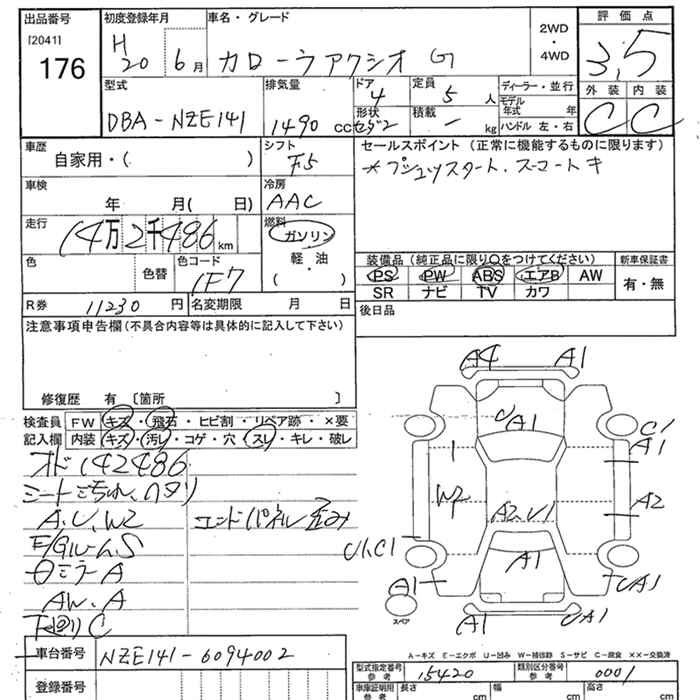 出品番号 初度登録年月 車名・グレード 2WD・4WD 評価点
[2041] H
176 20 6月 カローラアクシオ G 3.5
型式 排気量 ドア 4 定員 5人 ディーラー・並行 外装 内装
DBA-NZE141 1490 cc 形状 セダン 積載 - kg モデル年式 年 C C
ハンドル 左・右
車歴 シフト セールスポイント (正常に機能するものに限ります)
自家用・( ) F5 *プッシュスタート.スマートキ
車検 冷房
年 月( 日) AAC
走行 燃料
14万2千486km ガソリン
色 色替 色コード 軽・油 装備品 (純正品に限り〇をつけてください) 新車保証書
1F7 ( ) PS PW ABS エアB AW 有・無
SR ナビ TV カワ
R券 11230円 名変期限 月 日 後日品
注意事項申告欄 (不具合内容等は具体的に記入して下さい)
修復歴 有 〔箇所 〕
検査員 FW キズ・飛石・ヒビ割・リペア跡・×要
記入欄 内装 キズ・汚レ・コゲ・穴・スレ・キレ・破レ
オド142486
A,U,W2
E/Gルーム.S
ミラーA
AW.A
下廻りC
A4 A1
UA1
C1
A1
W2
A2
A2,U1
U1,C1
A1
A1 UA1
スペア
A1 UA1
A-キズ E-エクボ U-凹み W-補修跡 S-サビ C-腐食 ××-交換済
車台番号 NZE141-6094002
型式指定番号 参考 15420 類別区分番号 参考 0001
登録番号
車庫証明用 参考 長さ cm 幅 cm 高さ cm